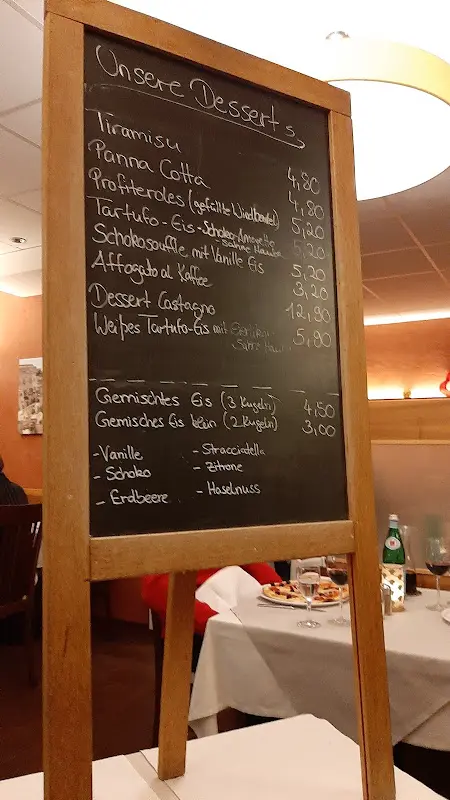 Unsere Desserts
Tiramisu 4,80
Panna Cotta 4,80
Profiteroles (gefüllte Windbeutel) 5,20
Tartufo-Eis-Schoko-Amorette 5,20
-Sahne Haube
Schokosouffle mit Vanille Eis 5,20
Affogato al Kaffee 3,20
Dessert Castagno 12,90
Weißes Tartufo-Eis mit 5,80
Sahne
Gemischtes Eis (3 Kugeln) 4,50
Gemisches Eis klein (2 Kugeln) 3,00
-Vanille - Stracciadella
- Schoko - Zitrone
- Erdbeere - Haselnuss